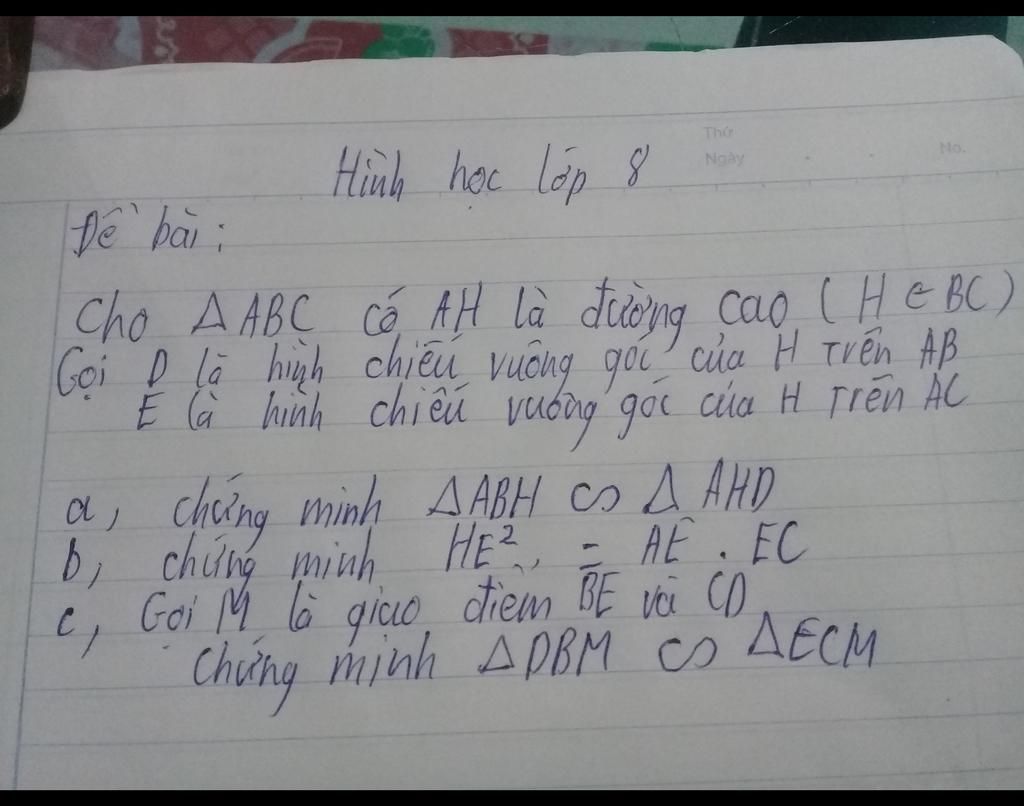 Thứ
Ngày . . No.
Hình học lớp 8
Đề bài:
Cho ΔABC có AH là đường cao (H ∈ BC)
Gọi D là hình chiếu vuông góc của H trên AB
E là hình chiếu vuông góc của H trên AC
a, chứng minh ΔABH ∽ ΔAHD
b, chứng minh HE² = AE . EC
c, Gọi M là giao điểm BE và CD
Chứng minh ΔDBM ∽ ΔECM